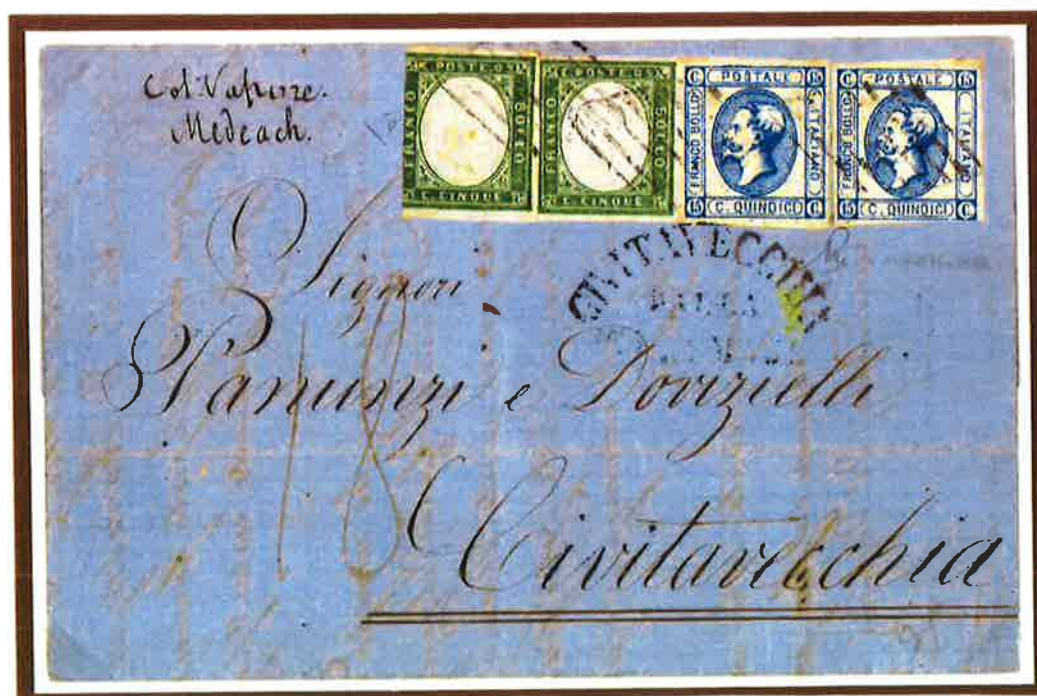 Col Vapore.
Medeach.
C. POSTE
FRANCO
BOLLO
C. CINQUE
C. POSTE
FRANCO
BOLLO
C. CINQUE
C. POSTALE 15
FRANCO BOLLO
ITALIANO
15 C. QUINDICI C.
C. POSTALE 15
FRANCO BOLLO
ITALIANO
15 C. QUINDICI C.
CIVITAVECCHIA
DALLA
Signori
18
Vanunzi e Dovizielli
Civitavecchia